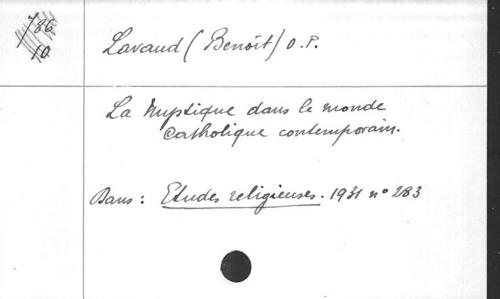 786
10
Lavaud (Benoît) O.P.
La Mystique dans le monde
catholique contemporain.
Dans : Etudes religieuses. 1931 n° 283